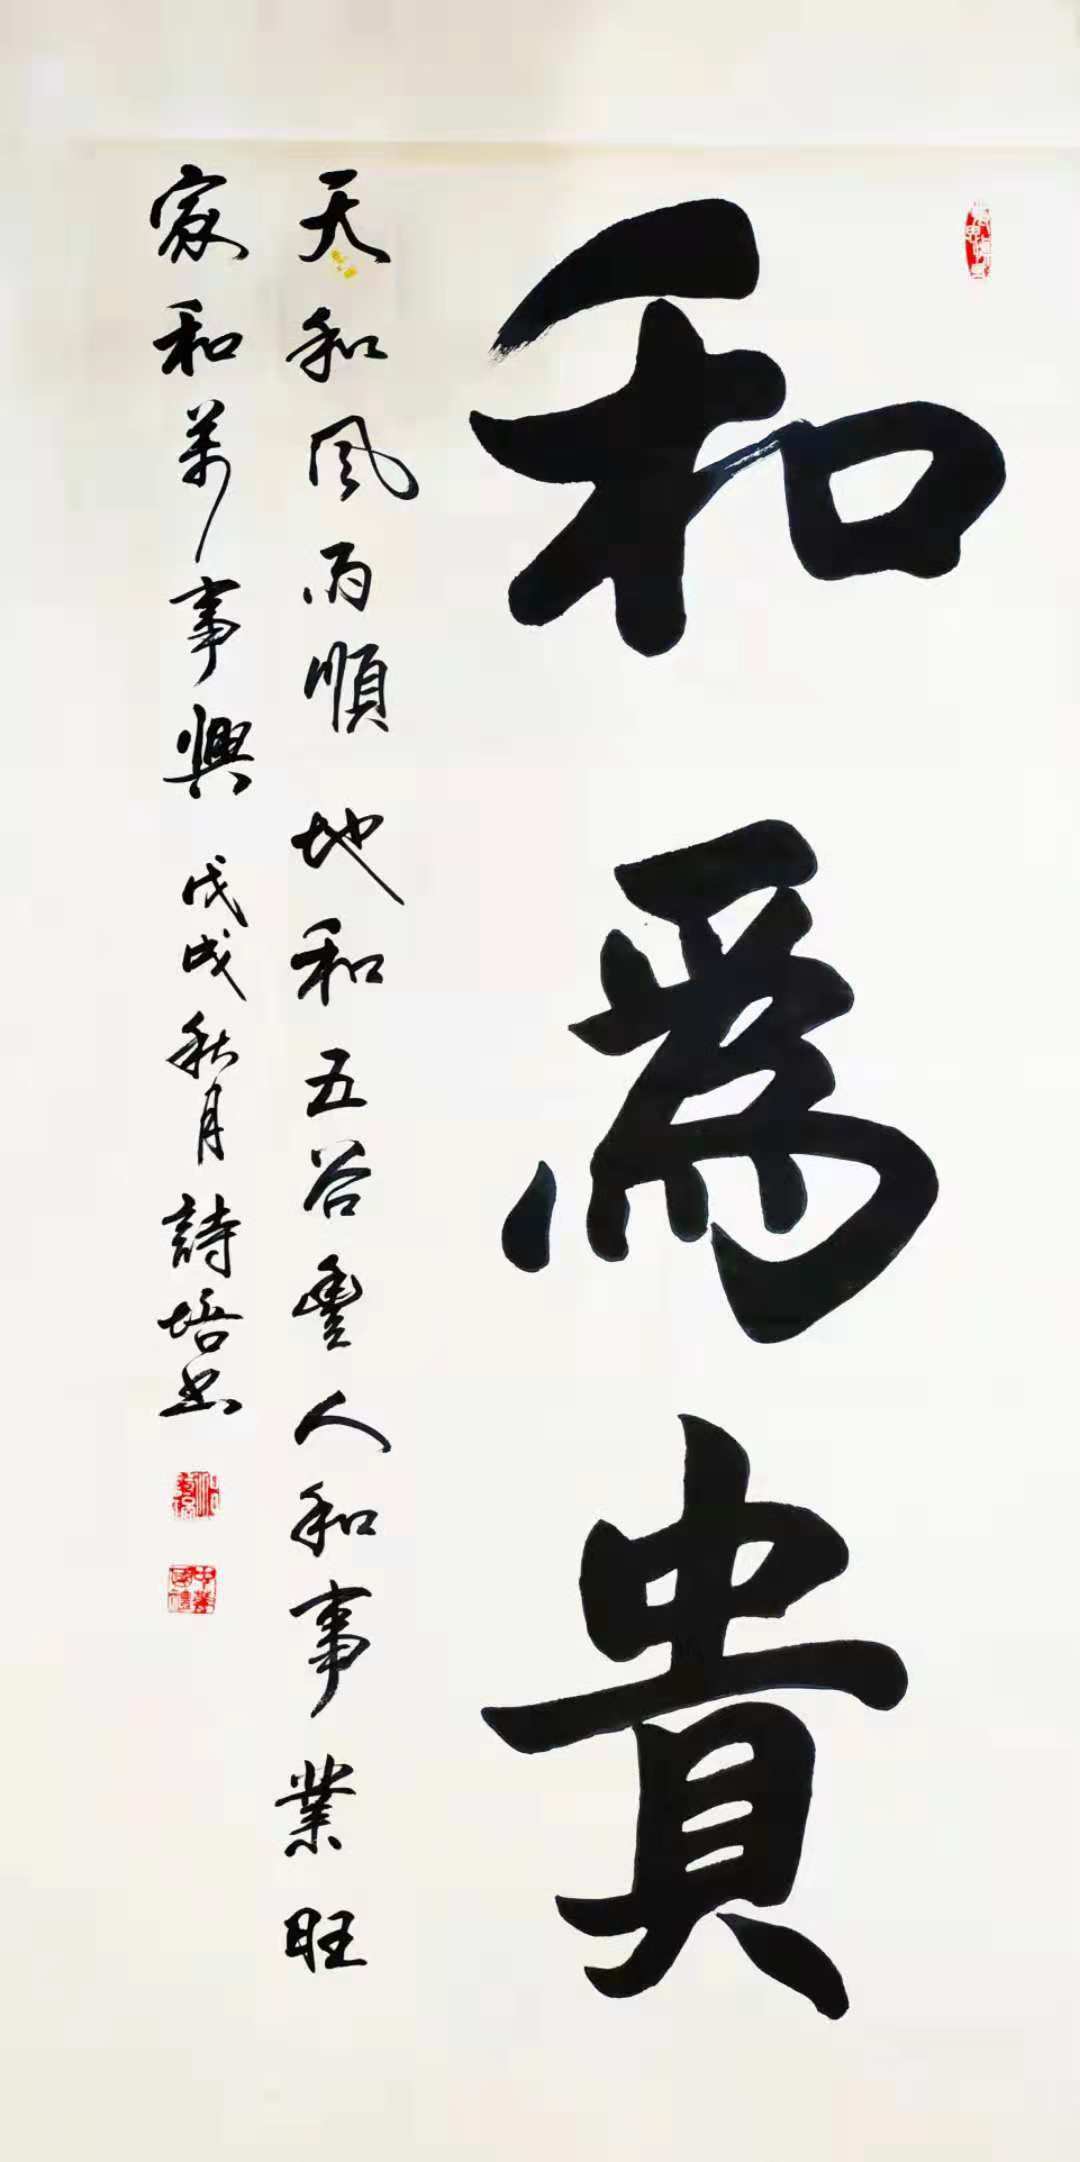 和為貴
天和風雨順 地和五谷豐人和事業旺
家和萬事興 戊戌秋月詩培书